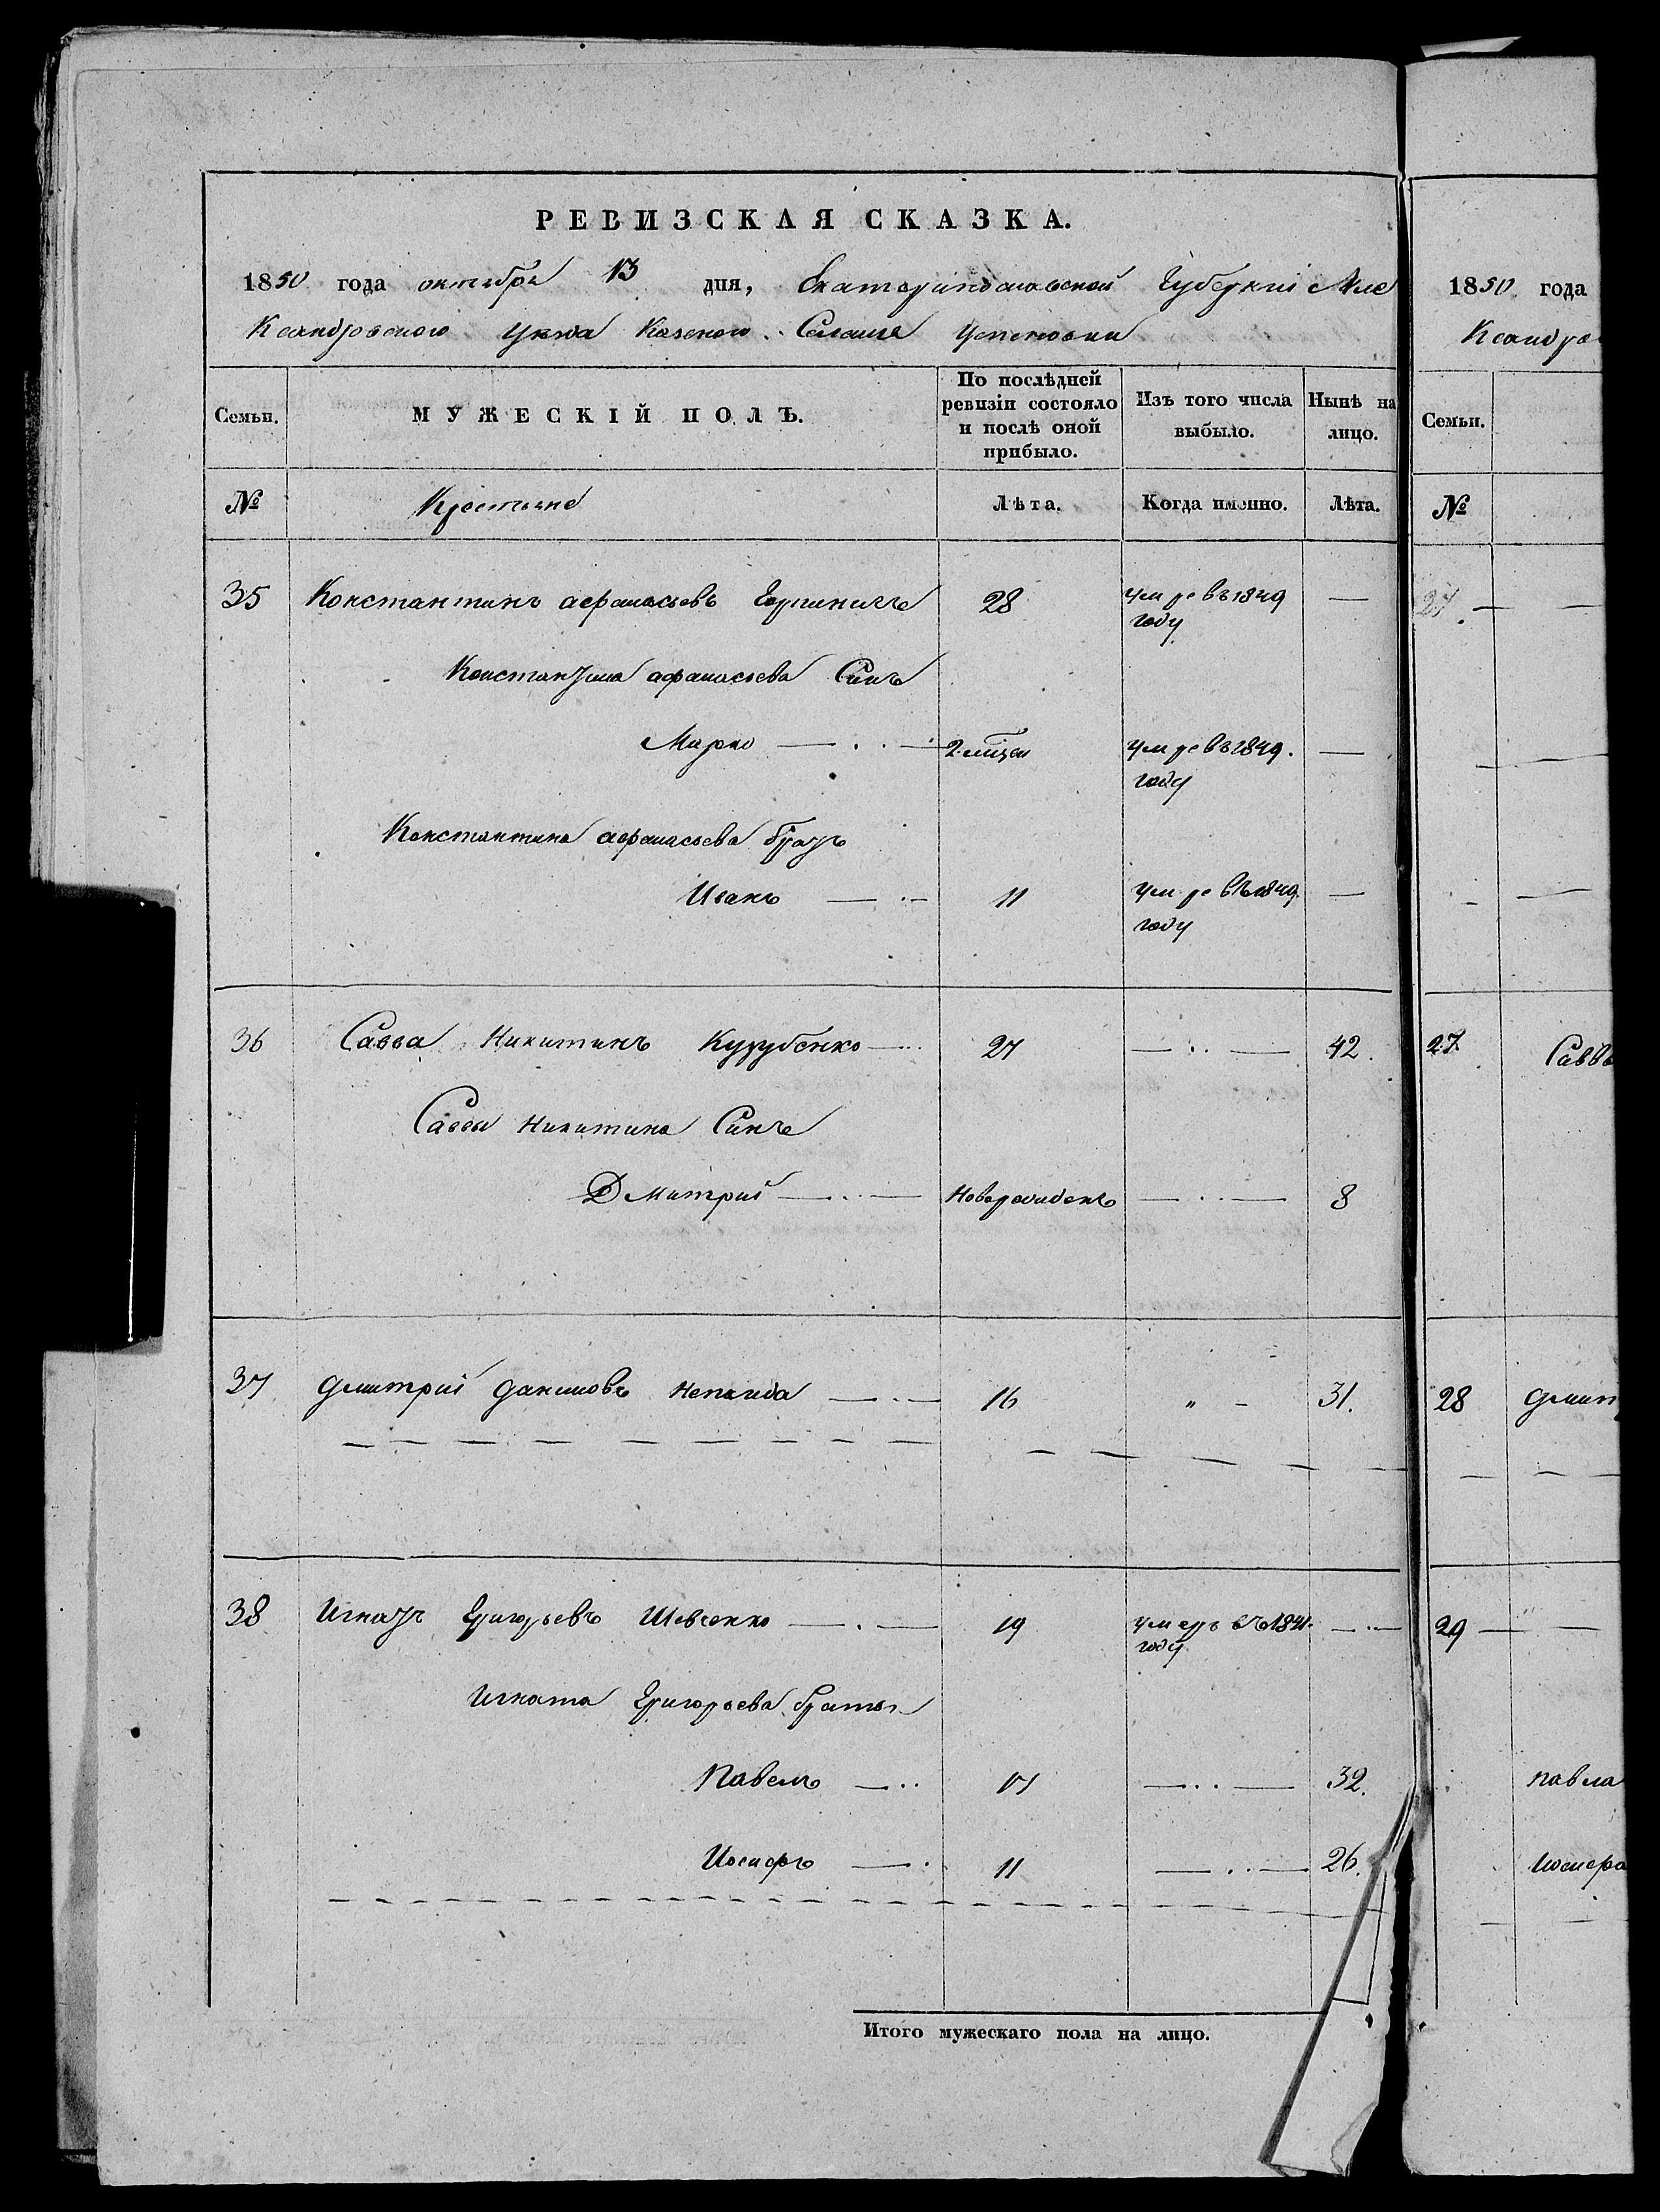 РЕВИЗСКАЯ СКАЗКА.
1850 года октября 13 дня, Екатеринославской Губерніи Але
Ксандровского уезда Казеного Селенія Успеновки
Семьи.
МУЖЕСКІЙ ПОЛЪ.
По послѣдней ревизіи состояло и послѣ оной прибыло.
Изъ того числа выбыло.
Нынѣ на лицо.
№ Крестьяне Лѣта. Когда именно. Лѣта.
35 Константинъ афанасьевъ 28 умре въ 1849 году —
Константина афанасьева Синъ
Марко — 2 умре въ 1849. году —
Константина афанасьева братъ
Иванъ — 11 умре въ 1849. году —
36 Савва Никитинъ — 27 — 42.
Саввы Никитина Синъ
Дмитрий — Новорожденъ — 8
37 Дмитрий Даниловъ — 16 " - 31.
38 Игнатъ Григорьевъ Шевченко — 19 умеръ въ 1841. году —
Игната Григорьева братья
Павелъ — 17 — 32.
Иосифъ — 11 — 26.
Итого мужескаго пола на лицо.
1850 года
Ксандро
Семьи.
№
27 —
27. Савв
28 Дмит
29 —
павла
иосифа